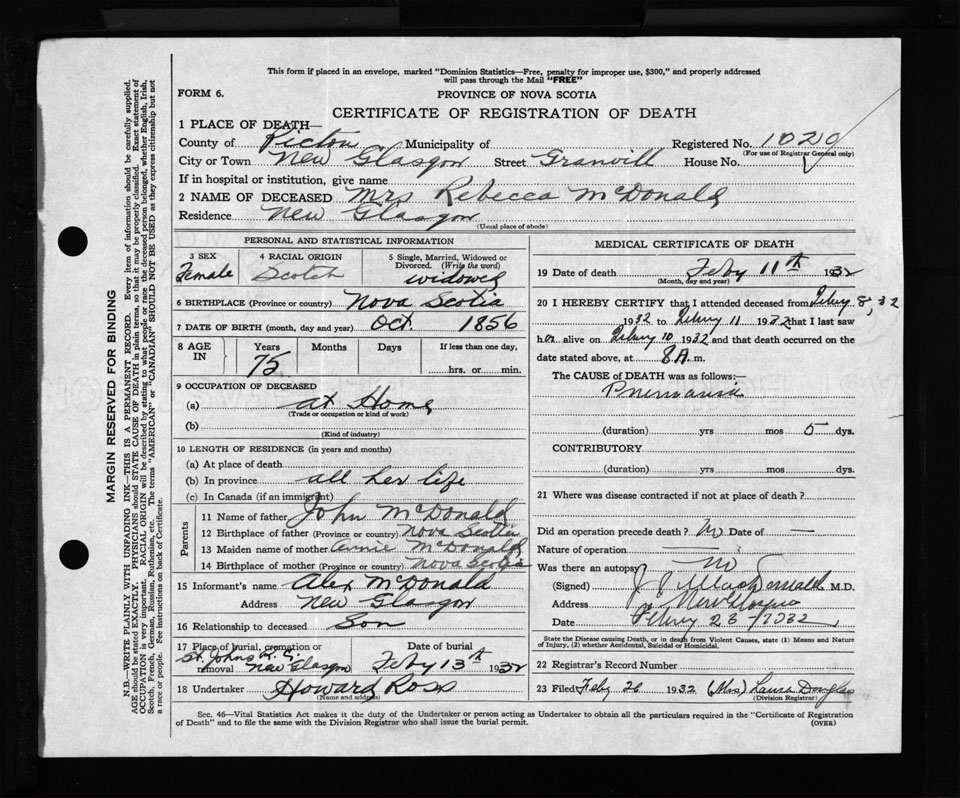 This form if placed in an envelope, marked "Dominion Statistics—Free, penalty for improper use, $300," and properly addressed
will pass through the Mail "FREE"
FORM 6.
PROVINCE OF NOVA SCOTIA
CERTIFICATE OF REGISTRATION OF DEATH
1 PLACE OF DEATH—
County of Pictou Municipality of Registered No. 1020
(For use of Registrar General only)
City or Town New Glasgow Street Granvill House No.
If in hospital or institution, give name
2 NAME OF DECEASED Mrs Rebecca McDonald
Residence New Glasgow
(Usual place of abode)
PERSONAL AND STATISTICAL INFORMATION
3 SEX
Female
4 RACIAL ORIGIN
Scotch
5 Single, Married, Widowed or
Divorced. (Write the word)
widowed
6 BIRTHPLACE (Province or country) Nova Scotia
7 DATE OF BIRTH (month, day and year) Oct 1856
8 AGE IN
Years
75
Months
Days
If less than one day.
hrs. or min.
9 OCCUPATION OF DECEASED
(a) at Home
(Trade or occupation or kind of work)
(b)
(Kind of industry)
10 LENGTH OF RESIDENCE (in years and months)
(a) At place of death
(b) In province all her life
(c) In Canada (if an immigrant)
Parents
11 Name of father John McDonald
12 Birthplace of father (Province or country) Nova Scotia
13 Maiden name of mother Annie McDonald
14 Birthplace of mother (Province or country) Nova Scotia
15 Informant's name Alex McDonald
Address New Glasgow
16 Relationship to deceased Son
17 Place of burial, cremation or
removal St Johns
New Glasgow
Date of burial
Feby 13th 1932
18 Undertaker Howard Ross
(Name and address)
MEDICAL CERTIFICATE OF DEATH
19 Date of death Feby 11th 1932
(Month, day and year)
20 I HEREBY CERTIFY that I attended deceased from Febry 8, 32
1932 to Febry 11 1932 that I last saw
her alive on Febry 10 1932 and that death occurred on the
date stated above, at 8 A. m.
The CAUSE of DEATH was as follows:—
Pneumonia
(duration) yrs mos 5 dys.
CONTRIBUTORY
(duration) yrs mos dys.
21 Where was disease contracted if not at place of death?
Did an operation precede death? No Date of —
Nature of operation —
Was there an autopsy No
(Signed) MacDonald M.D.
Address New Glasgow
Date Febry 23 1932
State the Disease causing Death, or in death from Violent Causes, state (1) Means and Nature
of Injury, (2) whether Accidental, Suicidal or Homicidal.
22 Registrar's Record Number
23 Filed Feby 26 1932 (Mrs) Laura Douglas
(Division Registrar)
Sec. 46—Vital Statistics Act makes it the duty of the Undertaker or person acting as Undertaker to obtain all the particulars required in the "Certificate of Registration
of Death" and to file the same with the Division Registrar who shall issue the burial permit.
(OVER)
MARGIN RESERVED FOR BINDING
N.B.—WRITE PLAINLY WITH UNFADING INK—THIS IS A PERMANENT RECORD. Every item of information should be carefully supplied.
AGE should be stated EXACTLY. PHYSICIANS should STATE CAUSE OF DEATH in plain terms, so that it may be properly classified. Exact statement of
OCCUPATION is very important. RACIAL ORIGIN will be described by stating to what people or race the deceased person belonged, whether English, Irish,
Scotch, French, German, Russian, Ruthenian, etc. The terms "AMERICAN" or "CANADIAN" SHOULD NOT BE USED as they express citizenship but not
a race or people. Fee instructions on back of Certificate.